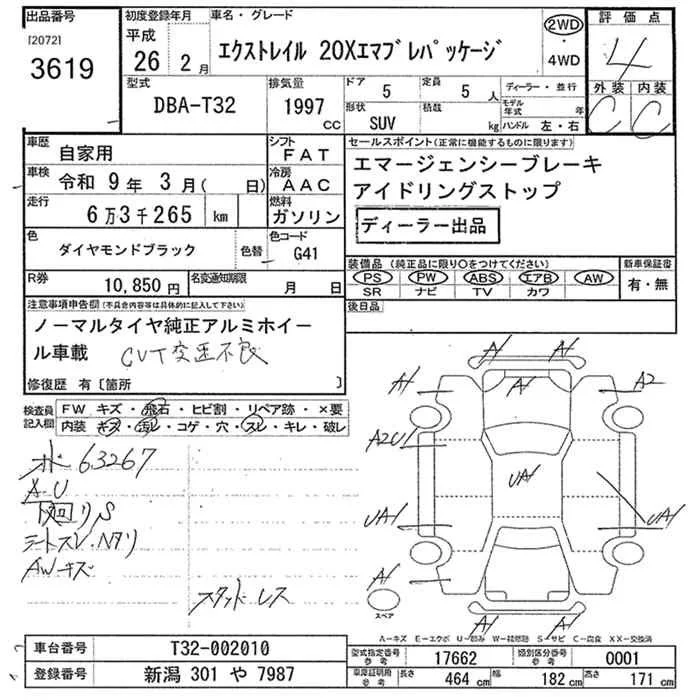 出品番号 初度登録年月 車名・グレード 2WD 評価点
[2072] 平成
3619 26 2月 エクストレイル 20Xエマブレパッケージ ・4WD 4
型式 排気量 ドア 5 定員 5人 ディーラー・並行 外装 内装
DBA-T32 1997 cc 形状 SUV 積載 kg モデル年式 年 C C
ハンドル 左・右
車歴 自家用 シフト FAT セールスポイント(正常に機能するものに限ります)
車検 令和 9年 3月( 日) 冷房 AAC エマージェンシーブレーキ
走行 6万3千265 km 燃料 ガソリン アイドリングストップ
ディーラー出品
色 ダイヤモンドブラック 色替 色コード G41
装備品(純正品に限り○をつけてください) 新車保証書
R券 10,850円 名変通知期限 月 日 PS PW ABS エアB AW 有・無
SR ナビ TV カワ
注意事項申告欄(不具合内容等は具体的に記入して下さい) 後日品
ノーマルタイヤ純正アルミホイー
ル車載 CVT変速不良
修復歴 有〔箇所 〕
検査員記入欄 FW キズ・飛石・ヒビ割・リペア跡・×要
内装 キズ・汚レ・コゲ・穴・スレ・キレ・破レ
63267
A U
下回りS
シートスレ・ヘタリ
AWキズ
スタッドレス
A1 A1
A1 A1 A2
A2U1
UA1
UA1 UA1
A1
スペア
A1 A1
A－キズ E－エクボ U－凹み W－補修跡 S－サビ C－腐食 XX－交換済
車台番号 T32-002010 型式指定番号 参考 17662 類別区分番号 参考 0001
登録番号 新潟 301 や 7987 車庫証明用 参考 長さ 464 cm 幅 182 cm 高さ 171 cm